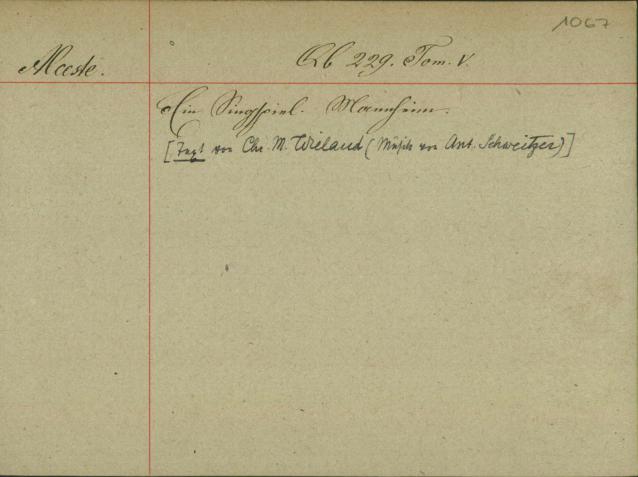 1067
Alceste. Qb 229. Tom. V.
Ein Singspiel. Mannheim.
[Text von Chr. M. Wieland (Musik von Ant. Schweitzer)]